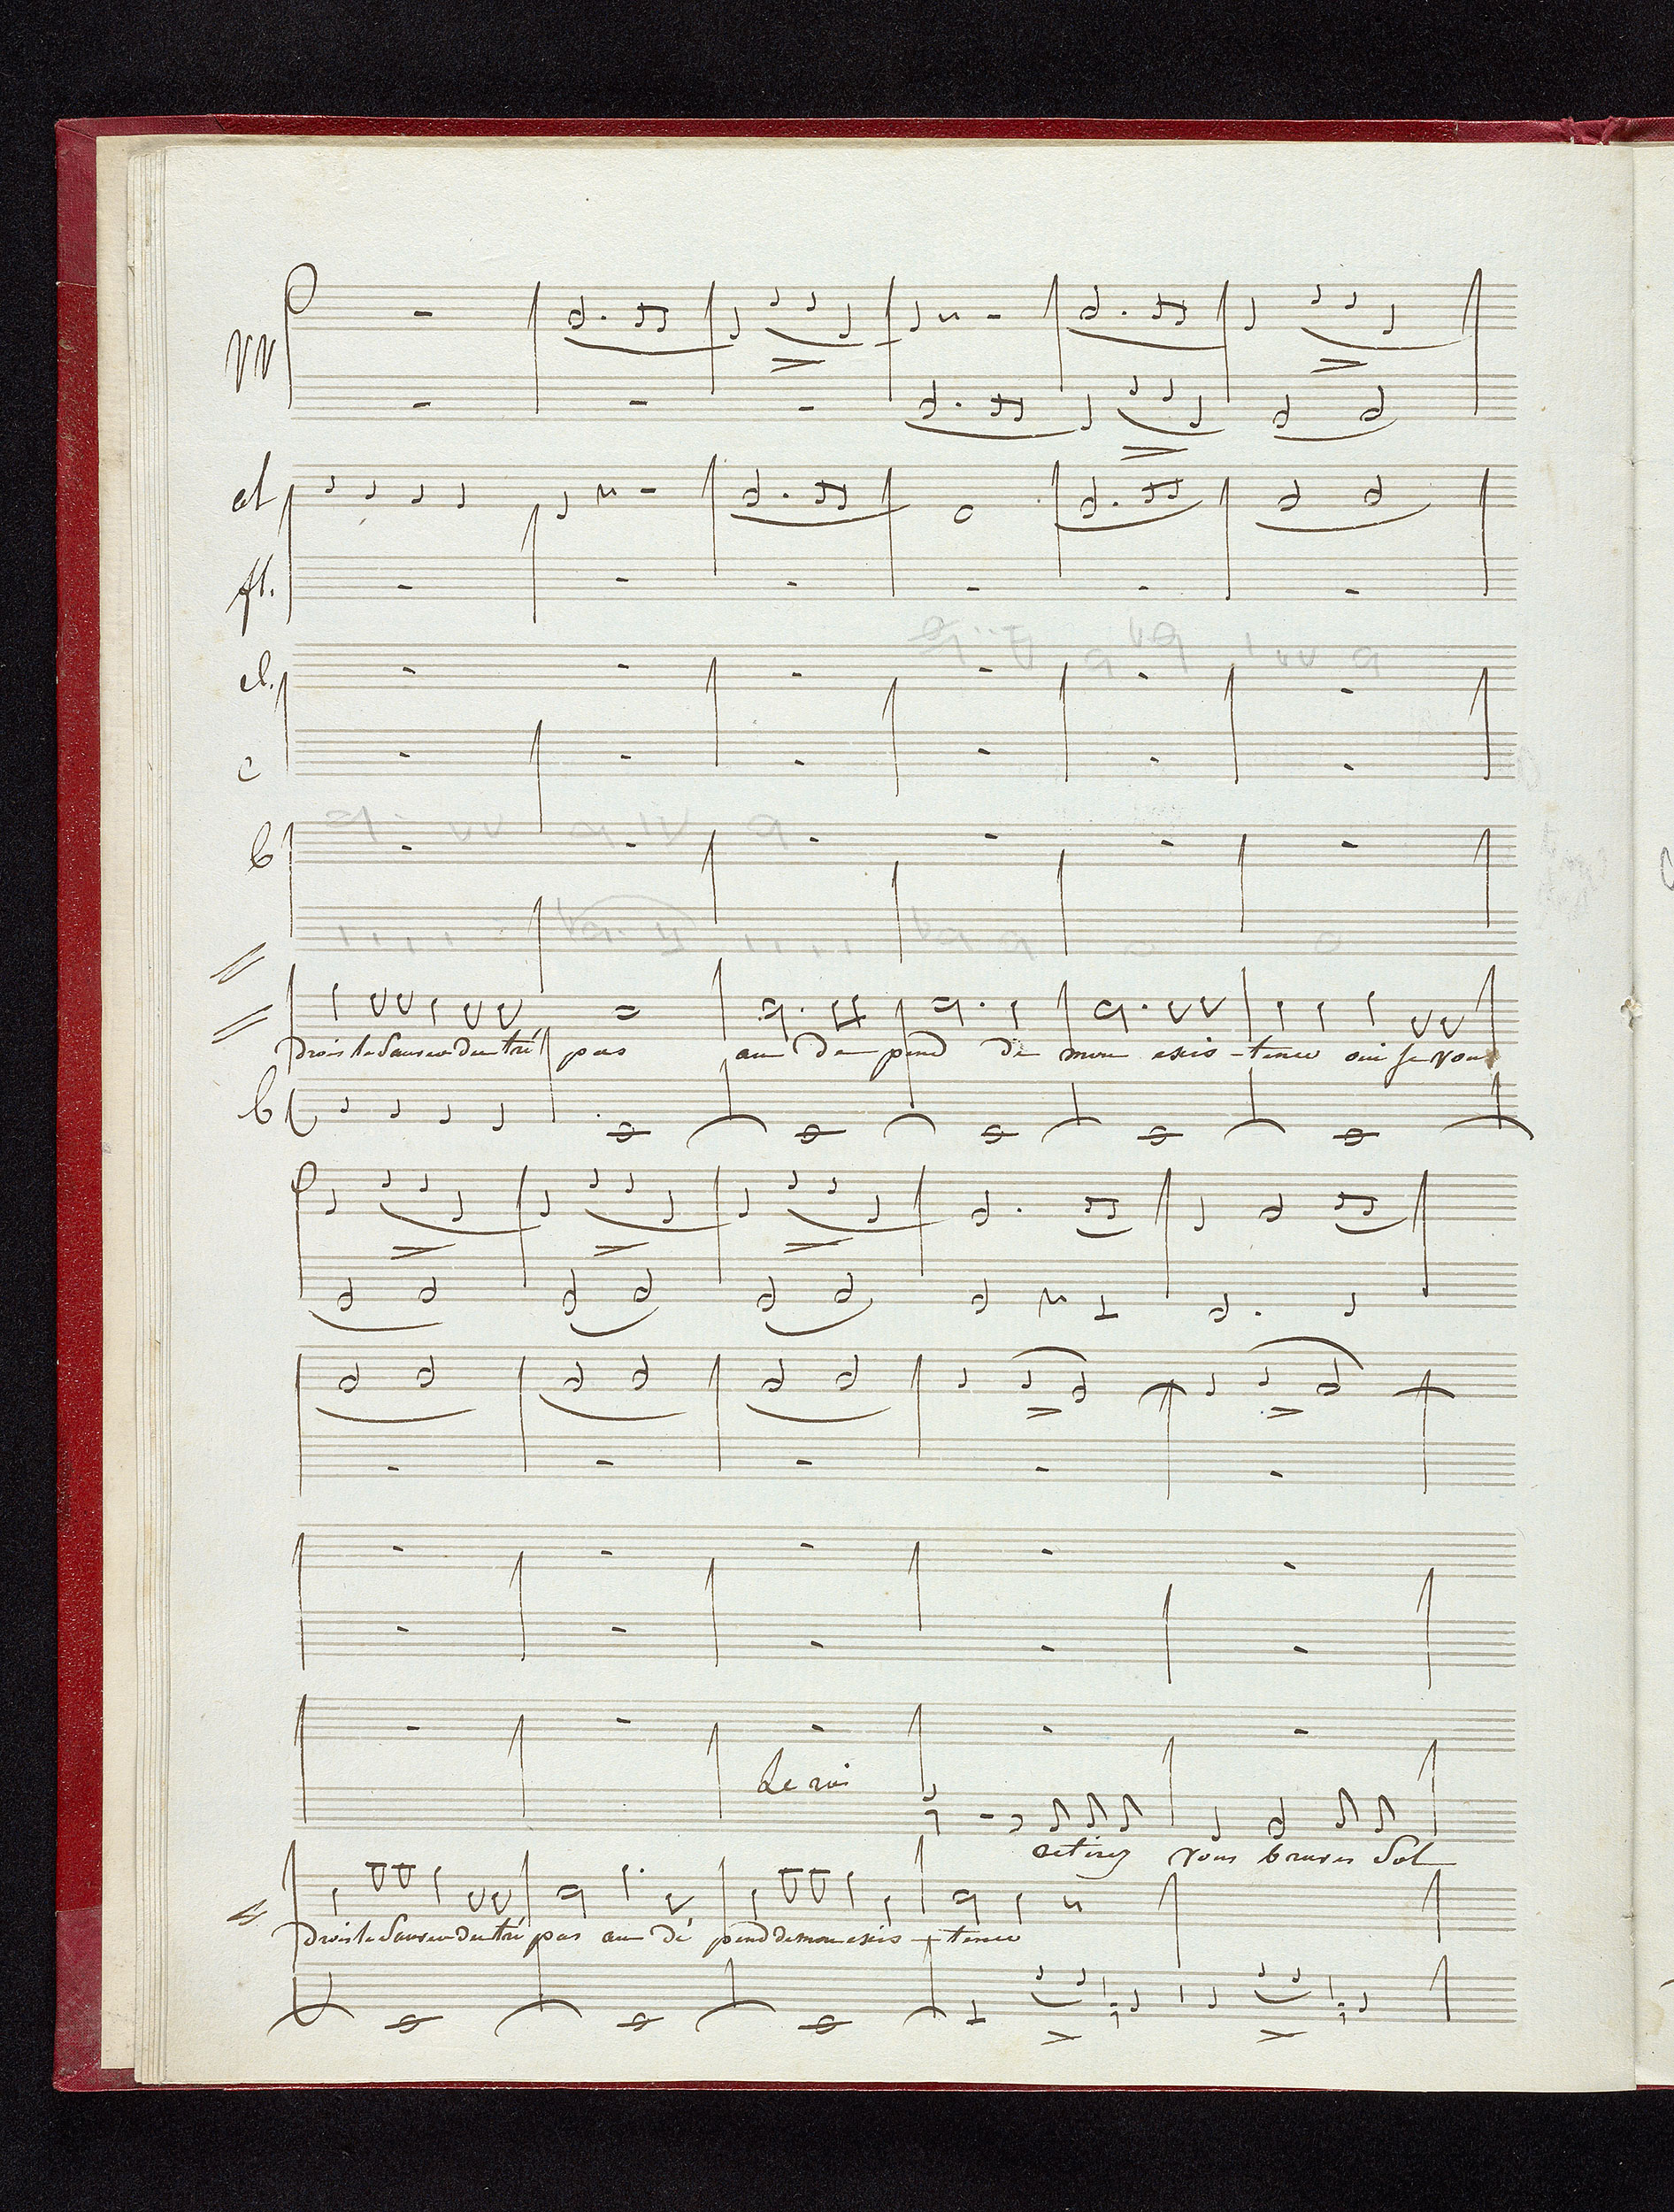 VV
al
fl.
cl.
c
b
drois le Sauver du tré pas au de pend de mon exis - tence oui je vou
b
Le roi
retirez vous braves Sol
drois le Sauver du tré pas au dé pend de mon exis - tence